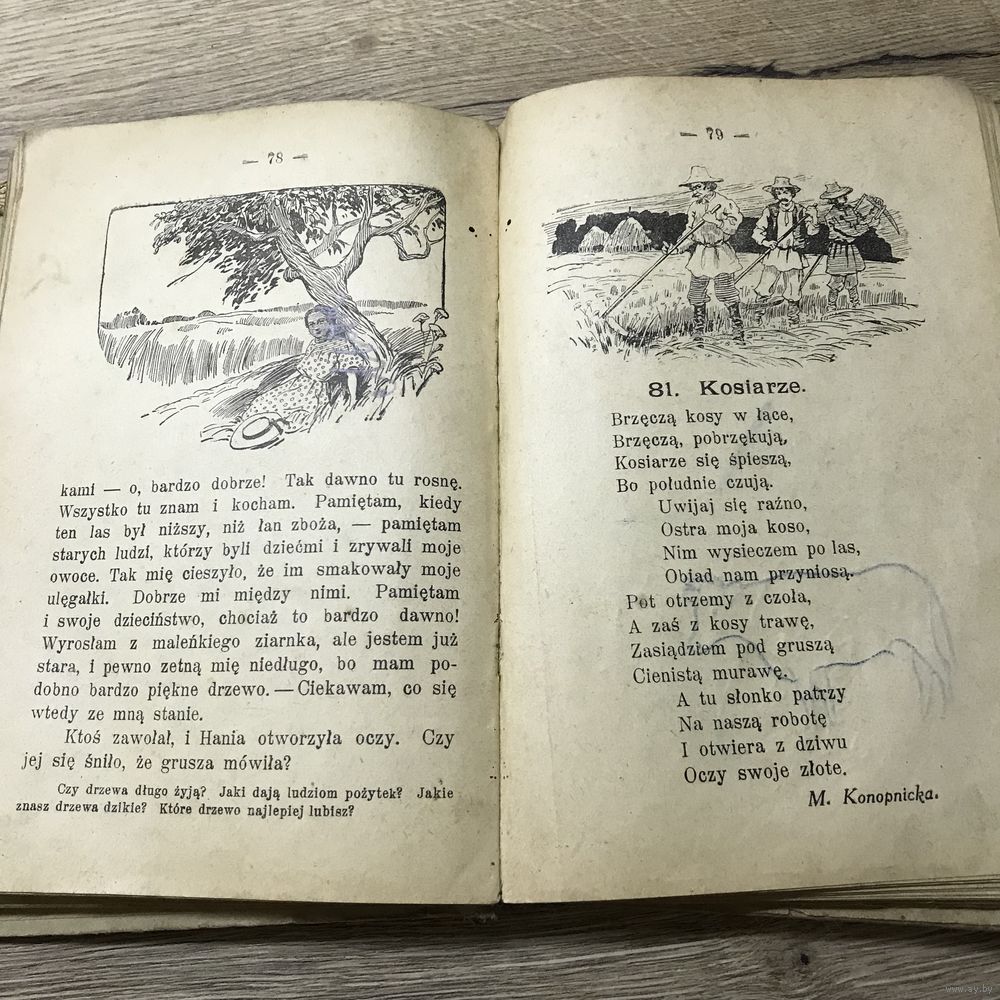 — 78 —
kami — o, bardzo dobrze! Tak dawno tu rosnę.
Wszystko tu znam i kocham. Pamiętam, kiedy
ten las był niższy, niż łan zboża, — pamiętam
starych ludzi, którzy byli dziećmi i zrywali moje
owoce. Tak mię cieszyło, że im smakowały moje
ulęgałki. Dobrze mi między nimi. Pamiętam
i swoje dzieciństwo, chociaż to bardzo dawno!
Wyrosłam z maleńkiego ziarnka, ale jestem już
stara, i pewno zetną mię niedługo, bo mam po-
dobno bardzo piękne drzewo. — Ciekawam, co się
wtedy ze mną stanie.
Ktoś zawołał, i Hania otworzyła oczy. Czy
jej się śniło, że grusza mówiła?
Czy drzewa długo żyją? Jaki dają ludziom pożytek? Jakie
znasz drzewa dzikie? Które drzewo najlepiej lubisz?
— 79 —
81. Kosiarze.
Brzęczą kosy w łące,
Brzęczą, pobrzękują,
Kosiarze się śpieszą,
Bo południe czują.
Uwijaj się raźno,
Ostra moja koso,
Nim wysieczem po las,
Obiad nam przyniosą.
Pot otrzemy z czoła,
A zaś z kosy trawę,
Zasiądziem pod gruszą
Cienistą murawę.
A tu słonko patrzy
Na naszą robotę
I otwiera z dziwu
Oczy swoje złote.
M. Konopnicka.
www.ay.by